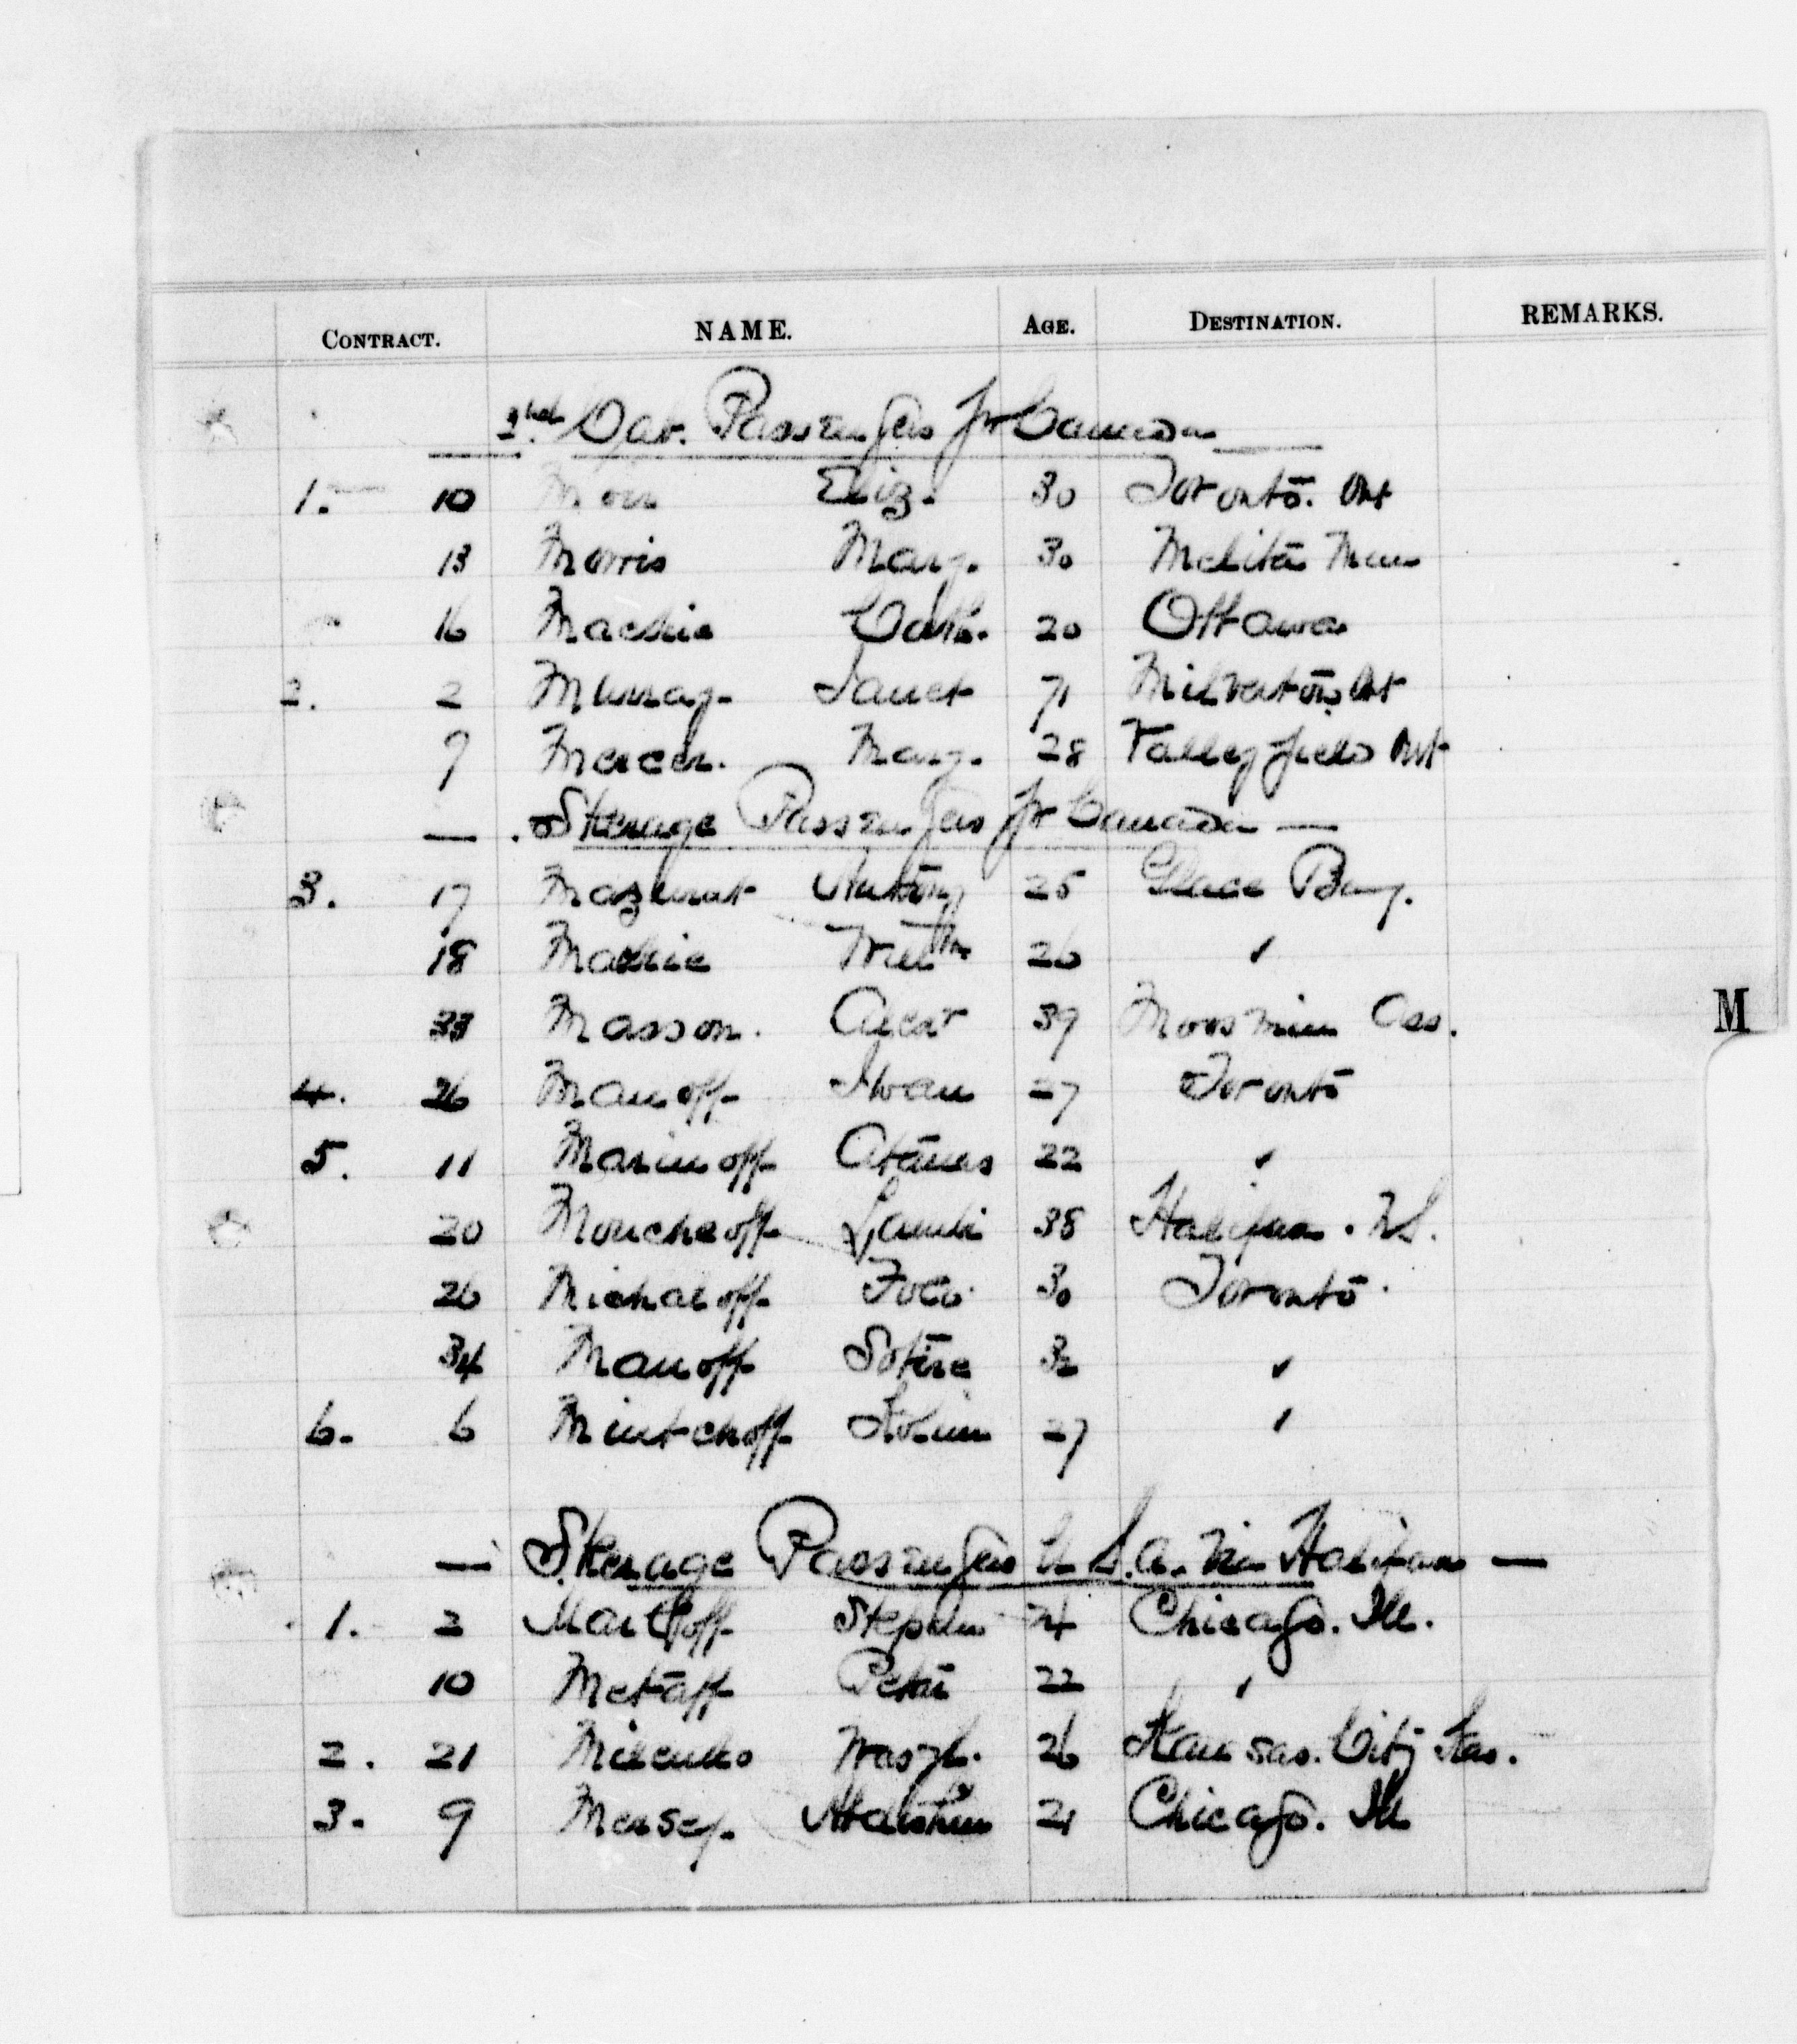 CONTRACT. NAME. AGE. DESTINATION. REMARKS.
2nd Cab. Passengers for Canada
1. 10 Moir Eliz. 30 Toronto. Ont
13 Morris Mary. 30 Melita Man
16 Mackie Cath. 20 Ottawa
2. 2 Murray Janet 71 Milverton Ont
9 Mercer. Mary. 28 Valleyfield Ont
Steerage Passengers for Canada
3. 17 Mazurat Antony 25 Glace Bay.
18 Mackie Willm 26 "
33 Masson. Alexr 39 Moosmin Ass.
4. 26 Manoff Ivan 27 Toronto
5. 11 Marinoff Atanas 22 "
20 Moucheoff Lambi 38 Halifax. N.S.
26 Michaloff 30 Toronto.
34 Manoff Sotire 32 "
6. 6 Mintchoff 27 "
Steerage Passengers U.S.A. via Halifax
1. 2 Stephen 24 Chicago. Ill.
10 Metaff Petri 22 "
2. 21 Milenko Wasyl. 26 Kansas. City Kas.
3. 9 Mersey. 21 Chicago. Ill
M